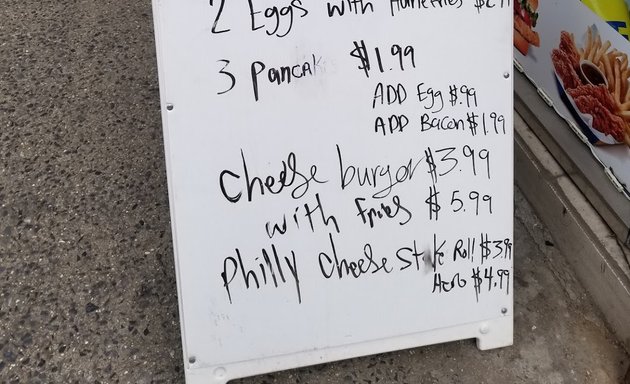 2 Eggs with Homefries $2.99
3 Pancak $1.99
ADD Egg $.99
ADD Bacon $1.99
cheese burger $3.99
with fries $5.99
Philly cheese stake Roll $3.99
Hero $4.99